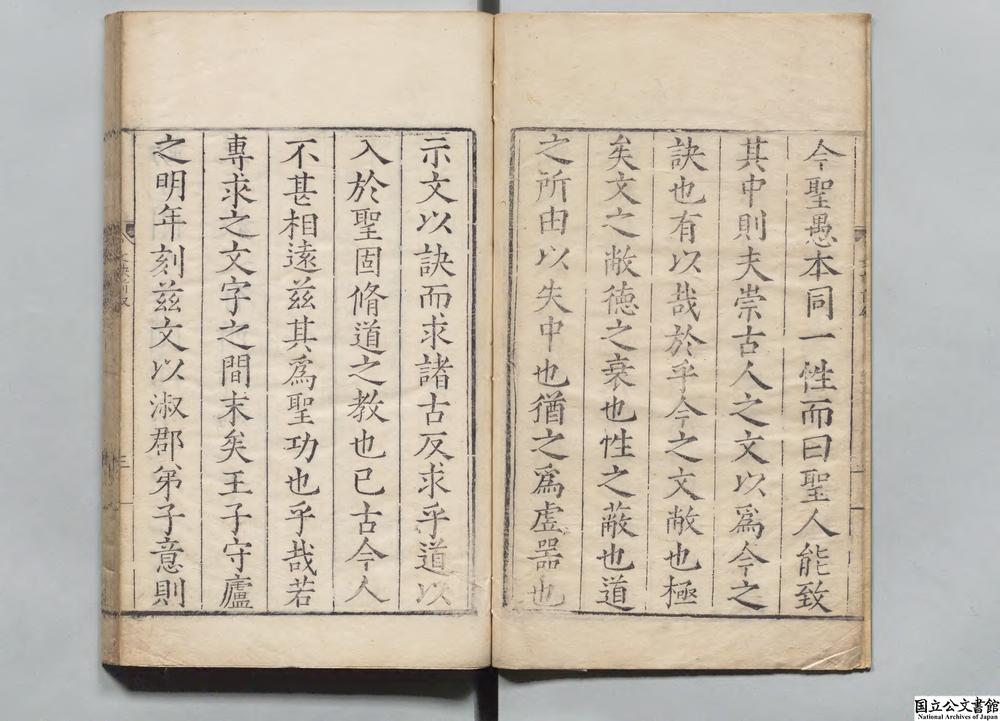 今聖愚本同一性而曰聖人能致
其中則夫崇古人之文以爲今之
訣也有以哉於乎今之文敝也極
矣文之敝徳之衰也性之蔽也道
之所由以失中也猶之爲虛器也
示文以訣而求諸古反求乎道以
入於聖固脩道之教也已古今人
不甚相遠兹其爲聖功也乎哉若
專求之文字之間末矣王子守廬
之明年刻兹文以淑郡弟子意則
三
国立公文書館
National Archives of Japan